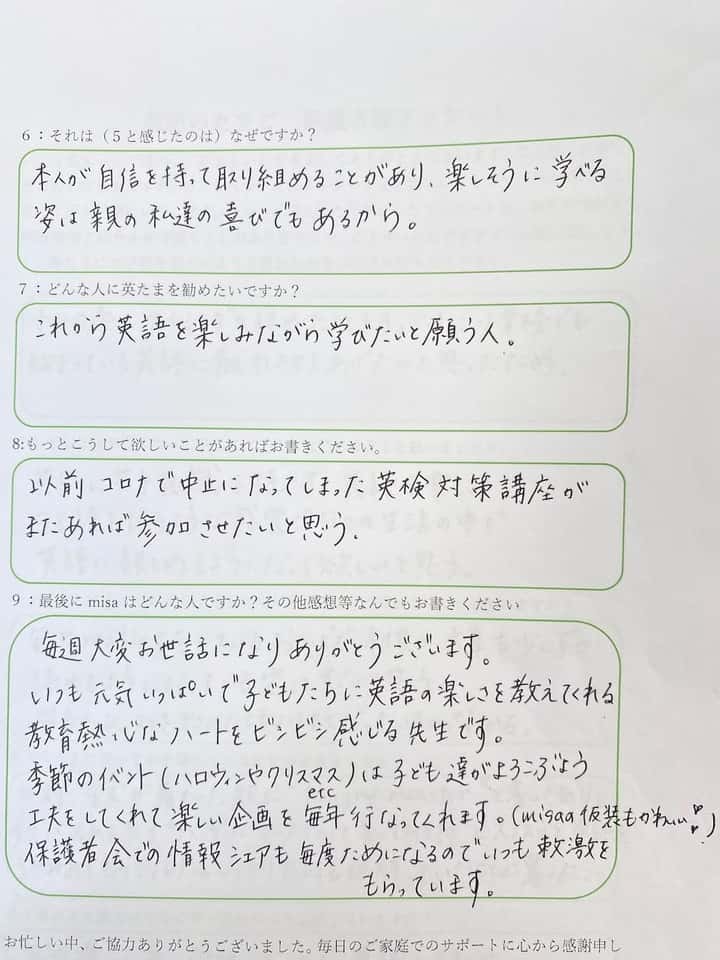 6：それは（5と感じたのは）なぜですか？
本人が自信を持って取り組めることがあり、楽しそうに学べる
姿は親の私達の喜びでもあるから。
7：どんな人に英たまを勧めたいですか？
これから英語を楽しみながら学びたいと願う人。
8:もっとこうして欲しいことがあればお書きください。
以前コロナで中止になってしまった英検対策講座が
またあれば参加させたいと思う.
9：最後に misa はどんな人ですか？その他感想等なんでもお書きください
毎週大変お世話になりありがとうございます。
いつも元気いっぱいで子どもたちに英語の楽しさを教えてくれる
教育熱心なハートをビシビシ感じる先生です。
季節のイベント(ハロウィンやクリスマス)は子ども達がよろこぶよう
etc
工夫をしてくれて楽しい企画を毎年行なってくれます。(misaの仮装もかわいい♥♥)
保護者会での情報シェアも毎度ためになるのでいつも刺激を
もらっています。
お忙しい中、ご協力ありがとうございました。毎日のご家庭でのサポートに心から感謝申し